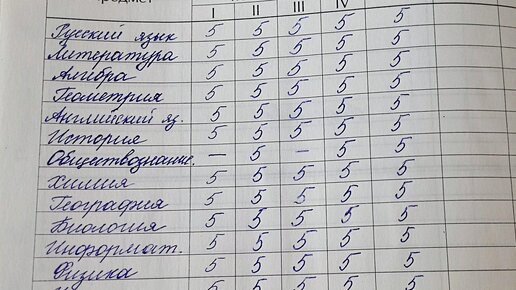 предмет
I II III IV
Русский язык 5 5 5 5 5
Литература 5 5 5 5 5
Алгебра 5 5 5 5 5
Геометрия 5 5 5 5 5
Английский яз. 5 5 5 5 5
История 5 5 5 5 5
Обществознание. — 5 — 5 5
Химия 5 5 5 5 5
География 5 5 5 5 5
Биология 5 5 5 5 5
Информат. 5 5 5 5 5
Физика 5 5 5 5 5
5 5 5 5 5